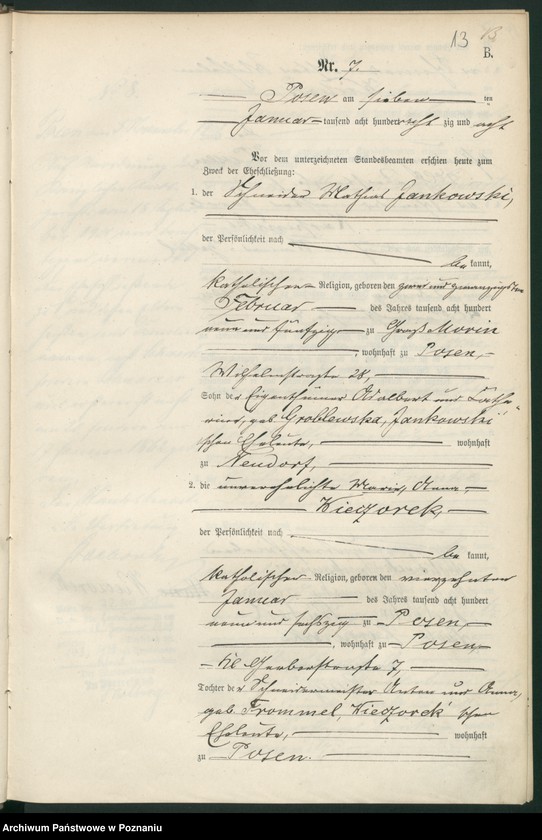 13
B.
Nr. 7.
Posen am sieben ten
Januar tausend acht hundert acht zig und acht
Vor dem unterzeichneten Standesbeamten erschien heute zum
Zweck der Eheschließung:
1. der Schneider Mathias Jankowski,
der Persönlichkeit nach
be kannt,
katholischer Religion, geboren den zwei und zwanzigsten
Februar des Jahres tausend acht hundert
neun und fünfzig zu Groß Morin
, wohnhaft zu Posen,
Wilhelmstraße 28,
Sohn der Eigenthümer Adalbert und Catha-
rina, geb. Groblewska, Jankowski'
schen Eheleute, wohnhaft
zu Neudorf,
2. die unverehelichte Marie, Anna,
Wieczorek,
der Persönlichkeit nach
be kannt,
katholischer Religion, geboren den vierzehnten
Januar des Jahres tausend acht hundert
neun und sechszig zu Posen,
, wohnhaft zu Posen,
Kl. Gerberstraße 7,
Tochter der Schneidermeister Anton und Anna,
geb. Frommel, Wieczorek'schen
Eheleute, wohnhaft
zu Posen.
Archiwum Państwowe w Poznaniu
szukajwarchiwach.pl